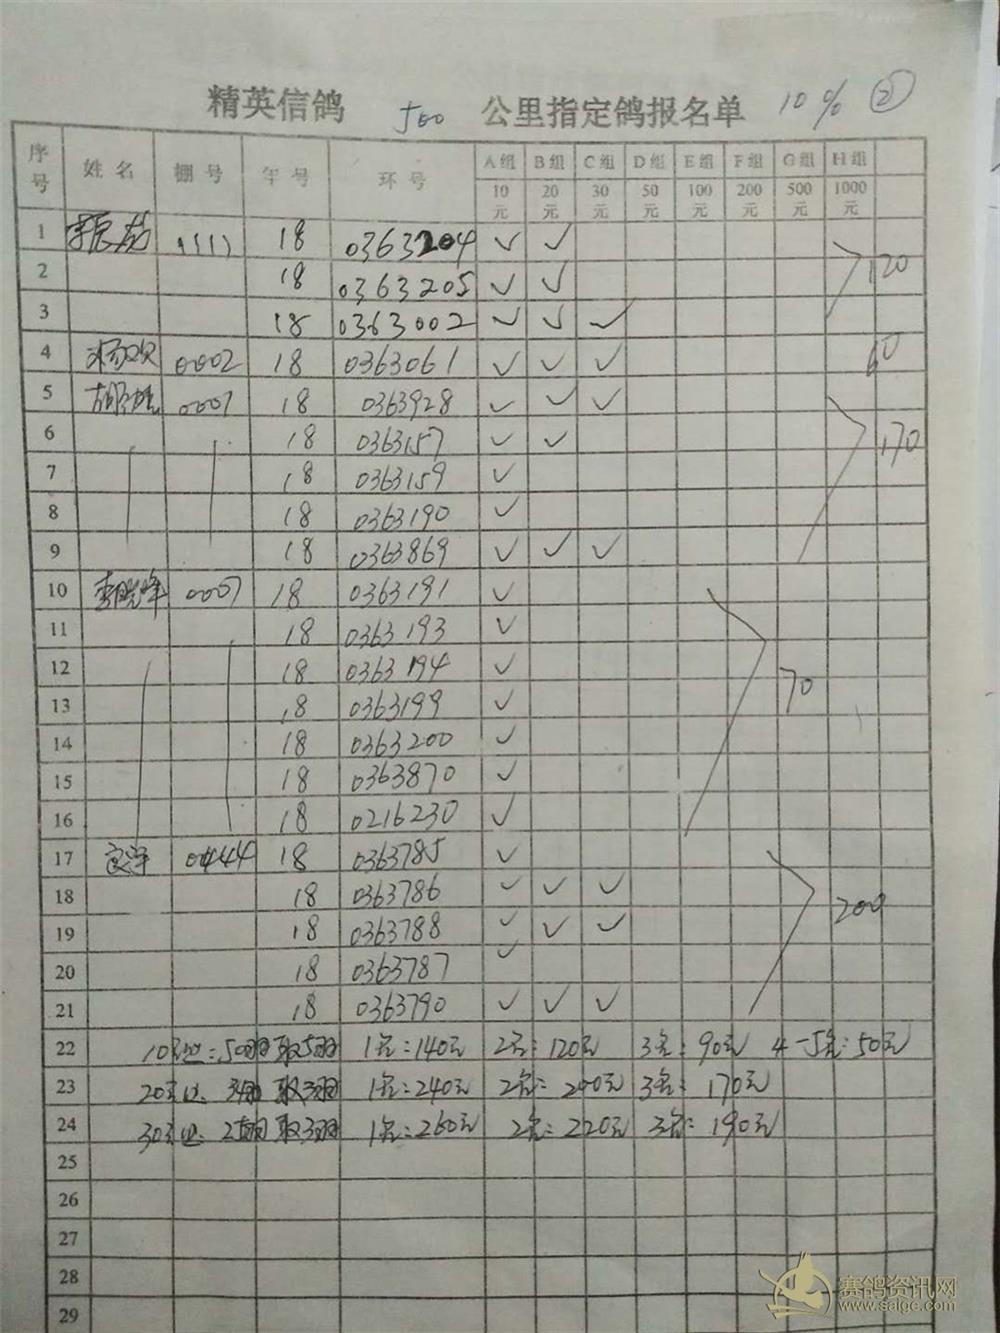 精英信鸽 500 公里指定鸽报名单 10% ②
序号 姓名 棚号 年号 环号 A组 B组 C组 D组 E组 F组 G组 H组
10元 20元 30元 50元 100元 200元 500元 1000元
1 1111 18 0363204 ✓ ✓
2 18 0363205 ✓ ✓ 120
3 18 0363002 ✓ ✓ ✓
4 0002 18 0363061 ✓ ✓ ✓ 60
5 0007 18 0363928 ✓ ✓ ✓
6 18 0363157 ✓ ✓ 170
7 18 0363159 ✓
8 18 0363190 ✓
9 18 0363869 ✓ ✓ ✓
10 李晓峰 0007 18 0363191 ✓
11 18 0363193 ✓
12 18 0363194 ✓
13 18 0363199 ✓ 70
14 18 0363200 ✓
15 18 0363870 ✓
16 18 0216230 ✓
17 0444 18 0363785 ✓
18 18 0363786 ✓ ✓ ✓ 200
19 18 0363788 ✓ ✓ ✓
20 18 0363787 ✓
21 18 0363790 ✓ ✓ ✓
22 10元 : 50羽取5羽 1名:140元 2名:120元 3名:90元 4-5名:50元
23 20元 取3羽 1名:240元 2名:200元 3名:170元
24 30元 取3羽 1名:260元 2名:220元 3名:190元
25
26
27
28
29
赛鸽资讯网
www.saige.com